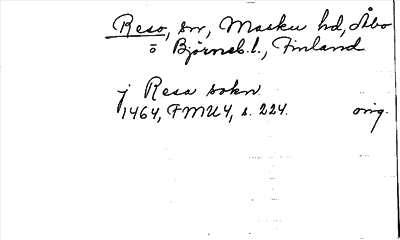 Reso, sn, Masku hd, Åbo
o Björneb. l., Finland
j Resa sokn
1464, FMU4, s. 224. orig.